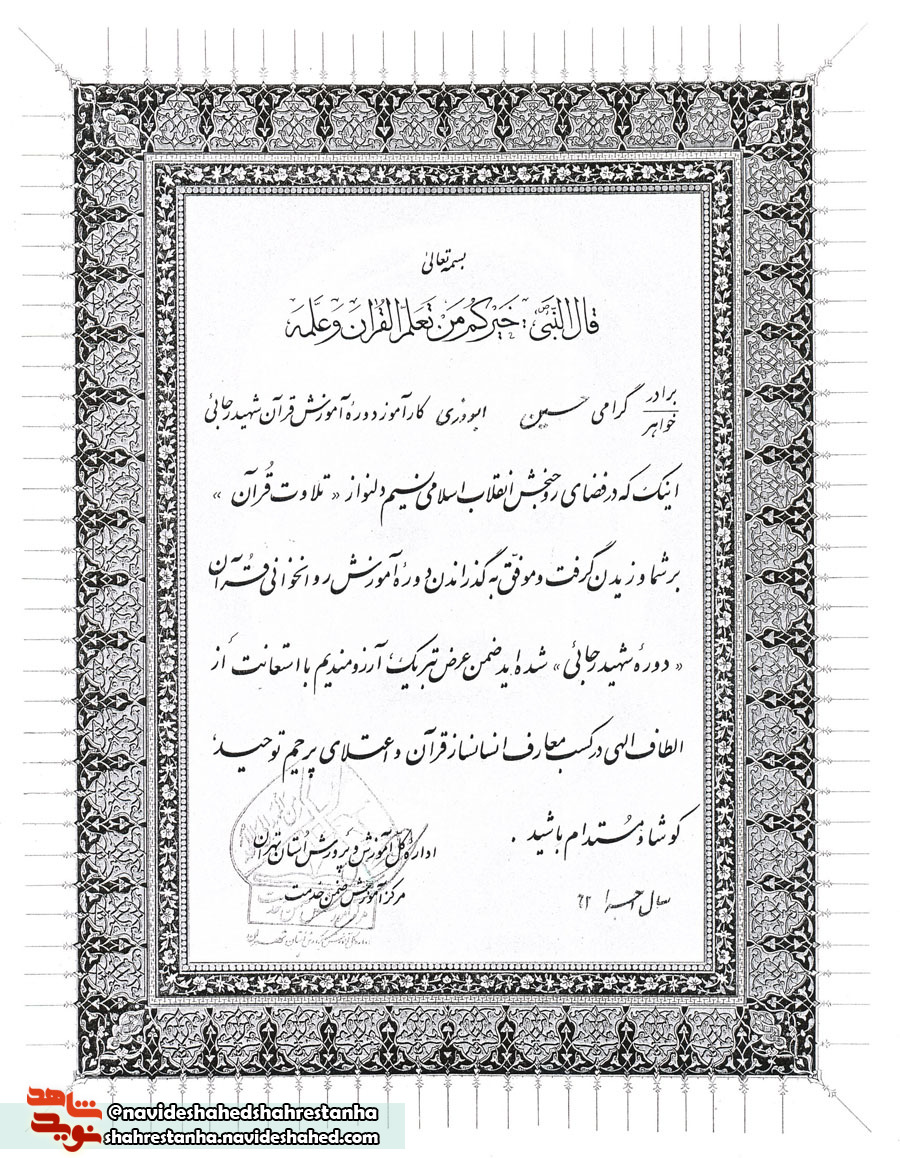 بسمه تعالیٰ
قال النَّبی ص: خَیرکُم مَن تَعَلَّم القُرآنَ وَ عَلَّمَه
برادر
خواهر
گرامی حسین ابوذری کارآموز دورهٔ آموزش قرآن شهید رجائی
اینک که در فضای روحبخش انقلاب اسلامی نسیم دلنواز « تلاوت قُرآن »
بر شما وزیدن گرفت و موفّق به گذراندن دورهٔ آموزش روانخوانی قرآن
« دورهٔ شهید رجائی » شده‌اید ضمن عرض تبریک آرزومندیم با استعانت از
الطاف الهی در کسب معارف انسانساز قرآن و اعتلای پرچم توحید،
کوشا و مُستدام باشید .
اداره کلّ آموزش و پرورش اُستان تهران
مرکز آموزش ضمن خدمت
سال اجرا ۶۲
شاهد
نوید
@navideshahedshahrestanha
shahrestanha.navideshahed.com